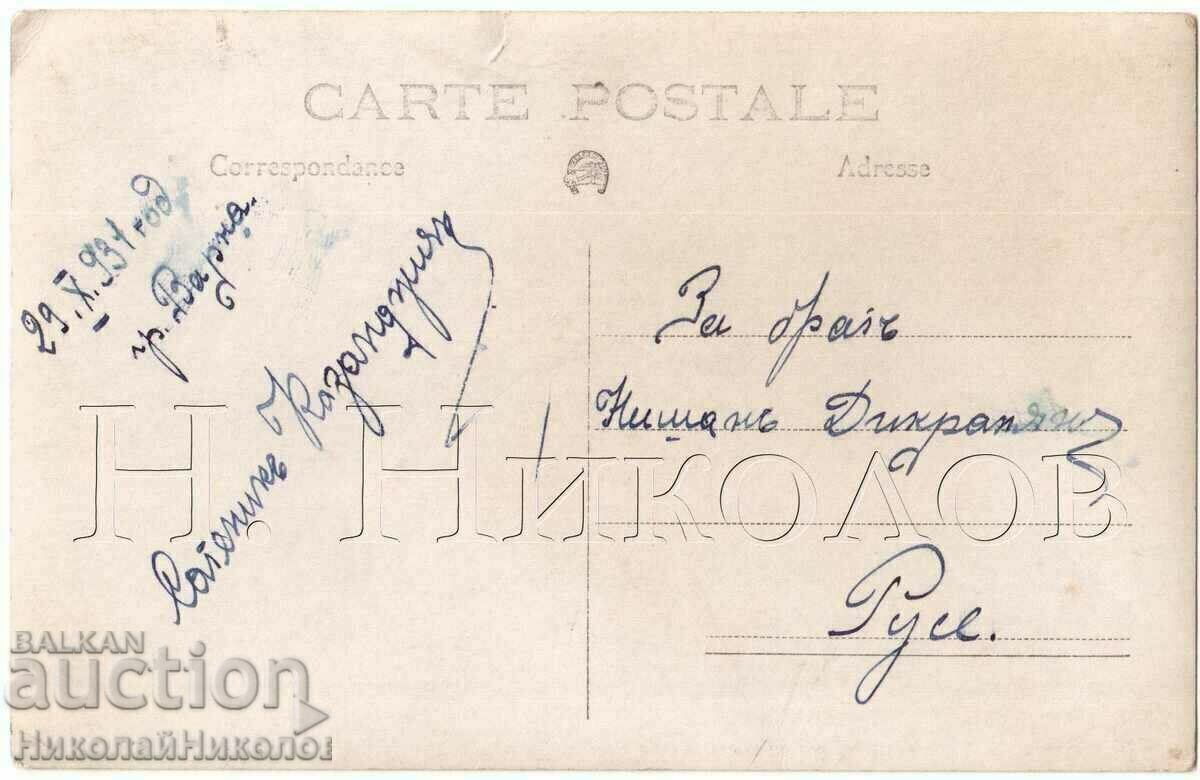 CARTE POSTALE
Correspondance
Adresse
29.X.931 год
гр. Варна.
Казанджиян
За братъ
Нишанъ Дикранян
Русе.
Н. Николов
BALKAN
auction
НиколайНиколов